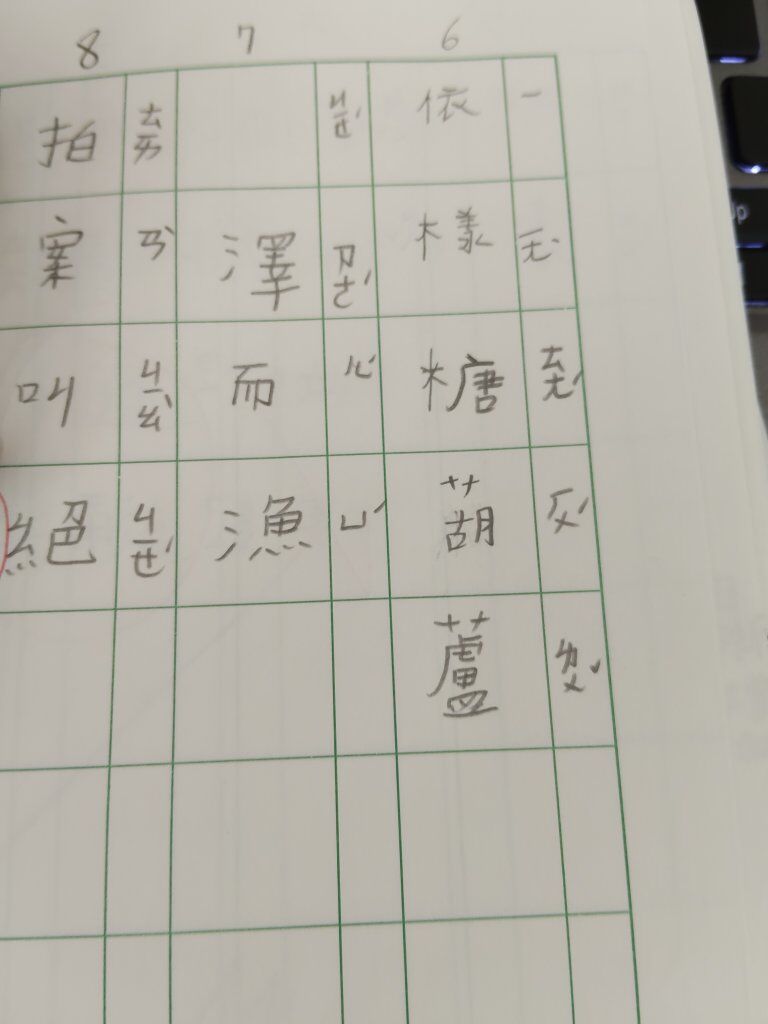 6
依樣糖葫蘆
ㄧ ㄧㄤˋ ㄊㄤˊ ㄏㄨˊ ㄌㄨˊ
7
澤而漁
ㄐㄧㄝˊ ㄗㄜˊ ㄦˊ ㄩˊ
8
拍案叫絕
ㄢˋ ㄐㄧㄠˋ ㄐㄧㄝˊ